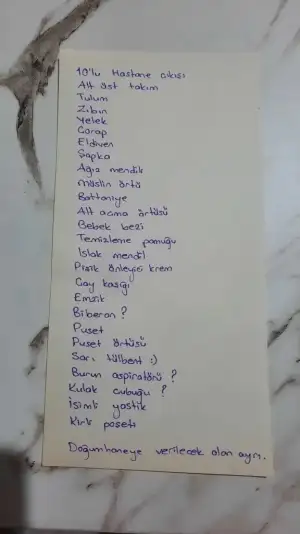 10'lu Hastane çıkışı
Alt üst takım
Tulum
Zıbın
Yelek
Çorap
Eldiven
Şapka
Ağız mendili
Müslin örtü
Battaniye
Alt açma örtüsü
Bebek bezi
Temizleme pamuğu
Islak mendil
Pişik önleyici krem
Çay kaşığı
Emzik
Biberon ?
Puset
Puset örtüsü
Sarı tülbent :)
Burun aspiratörü ?
Kulak çubuğu ?
İsimli yastık
Kirli poşeti
Doğumhaneye verilecek olan ayrı.